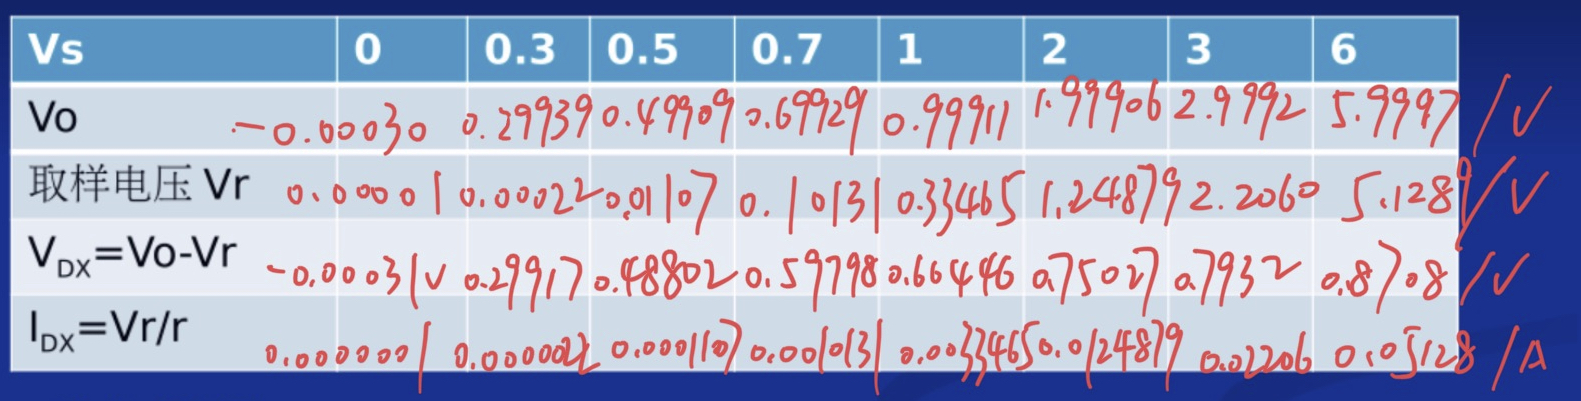 Vs 0 0.3 0.5 0.7 1 2 3 6
Vo -0.00030 0.29939 0.49909 0.69929 0.99911 1.99906 2.9992 5.9997 /V
取样电压 Vr 0.00001 0.00022 0.01107 0.10131 0.33465 1.24879 2.2060 5.1289 /V
VDX=Vo-Vr -0.00031V 0.29917 0.48802 0.59798 0.66446 0.75027 0.7932 0.8708 /V
IDX=Vr/r 0.0000001 0.0000022 0.0001107 0.0010131 0.0033465 0.0124879 0.02206 0.05128 /A